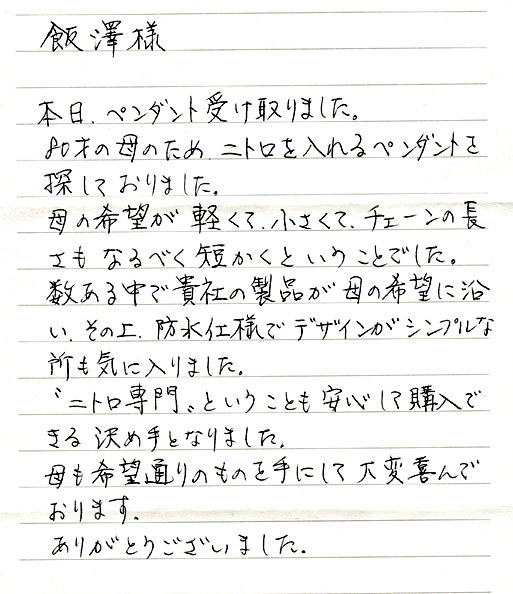 飯澤様
本日、ペンダント受け取りました。
80才の母のため、ニトロを入れるペンダントを
探しておりました。
母の希望が軽くて、小さくて、チェーンの長
さもなるべく短かくということでした。
数ある中で貴社の製品が母の希望に沿
い、その上、防水仕様でデザインがシンプルな
所も気に入りました。
〝ニトロ専門〟ということも安心して購入で
きる決め手となりました。
母も希望通りのものを手にして大変喜んで
おります。
ありがとうございました。